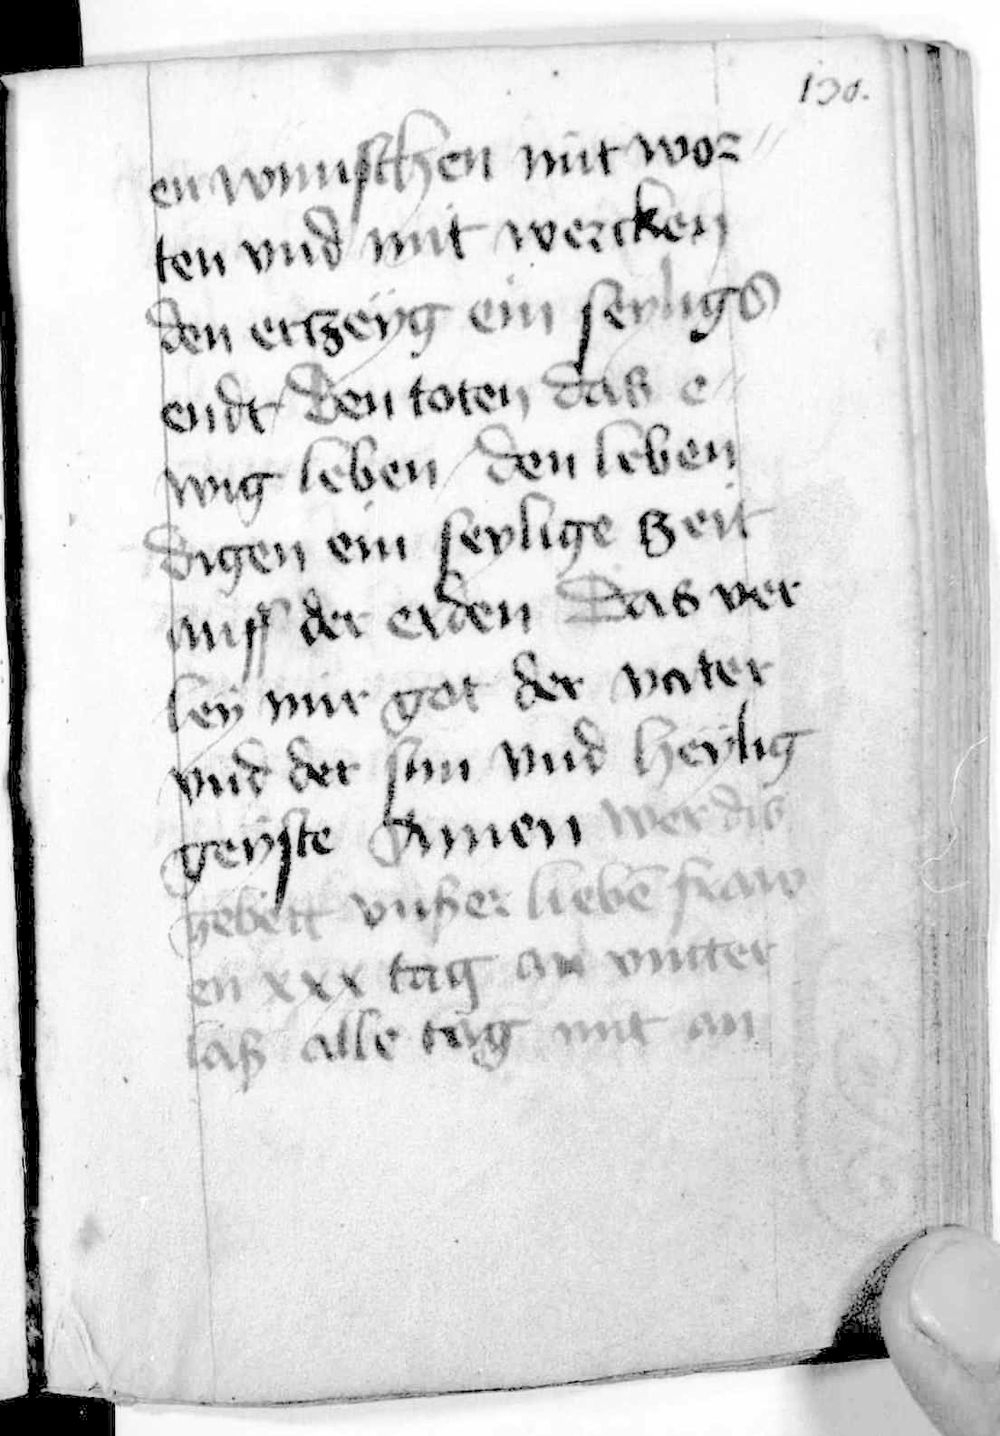 130.
en wunschen mit wor//
ten vnd mit wercken
den ertzeÿg ein seyligs
endt / Den toten das e//
wig leben / den leben
digen ein seylige zeit
auff der erden Das ver
leÿ mir got der vater
vnd der sun vnd heÿlig
geÿste Amen wer dis
gebett vnßer liebē fraw
en xxx tag an vnter
laß alle tag mit an